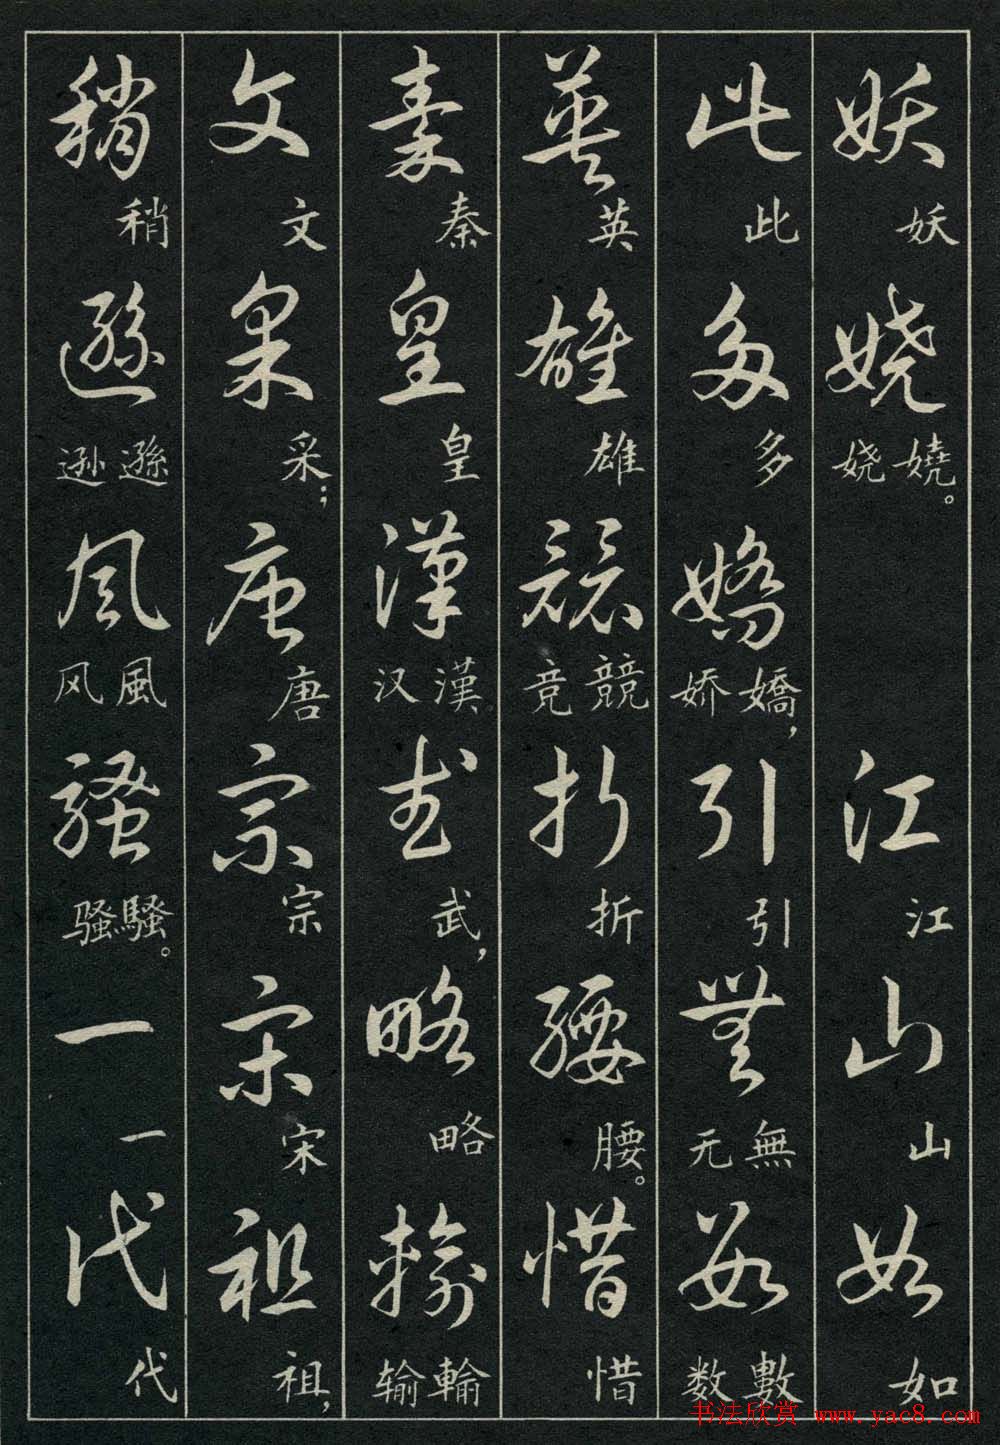 妖嬈江山如
妖嬈。娆江山如
此多嬌引無數
此多嬌，娇引無无數数
英雄競折腰惜
英雄競竞折腰。惜
秦皇漢武略輸
秦皇漢汉武，略輸输
文采唐宗宋祖
文采；唐宗宋祖，
稍遜風騷一代
稍遜逊風风騷。骚一代
书法欣赏 www.yac8.com